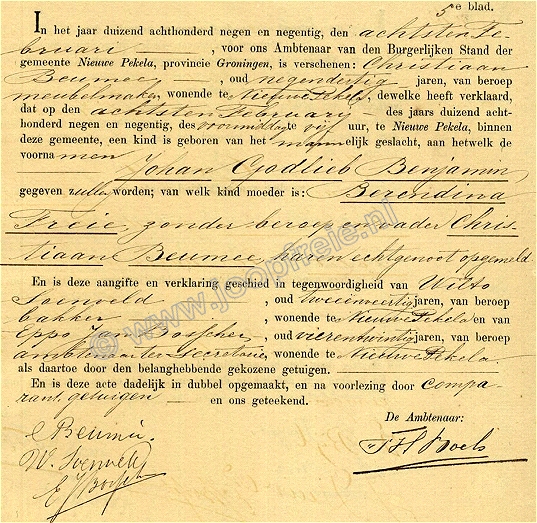 5e blad.
In het jaar duizend achthonderd negen en negentig, den achtsten Fe-
bruari , voor ons Ambtenaar van den Burgerlijken Stand der
gemeente Nieuwe Pekela, provincie Groningen, is verschenen: Christiaan
Beumee , oud negendertig jaren, van beroep
meubelmaker, wonende te Nieuwe Pekela, dewelke heeft verklaard,
dat op den achtsten February des jaars duizend acht-
honderd negen en negentig, des voormiddags te vijf uur, te Nieuwe Pekela, binnen
deze gemeente, een kind is geboren van het mannelijk geslacht, aan hetwelk de
voornamen Johan Godlieb Benjamin
gegeven zullen worden; van welk kind moeder is: Berendina
Freie, zonder beroep en vader Chris-
tiaan Beumee, haren echtgenoot opgemeld
En is deze aangifte en verklaring geschied in tegenwoordigheid van Wilto
Soenveld , oud tweeenveertig jaren, van beroep
bakker , wonende te Nieuwe Pekela en van
Eppo Jan Bosscher , oud vierentwintig jaren, van beroep
ambtenaar ter secretarie, wonende te Nieuwe Pekela
als daartoe door den belanghebbende gekozene getuigen.
En is deze acte dadelijk in dubbel opgemaakt, en na voorlezing door compa-
rant, getuigen en ons geteekend.
De Ambtenaar:
C Beumée.
W. Soenveld
E J Bossch
© www.joopfreie.nl